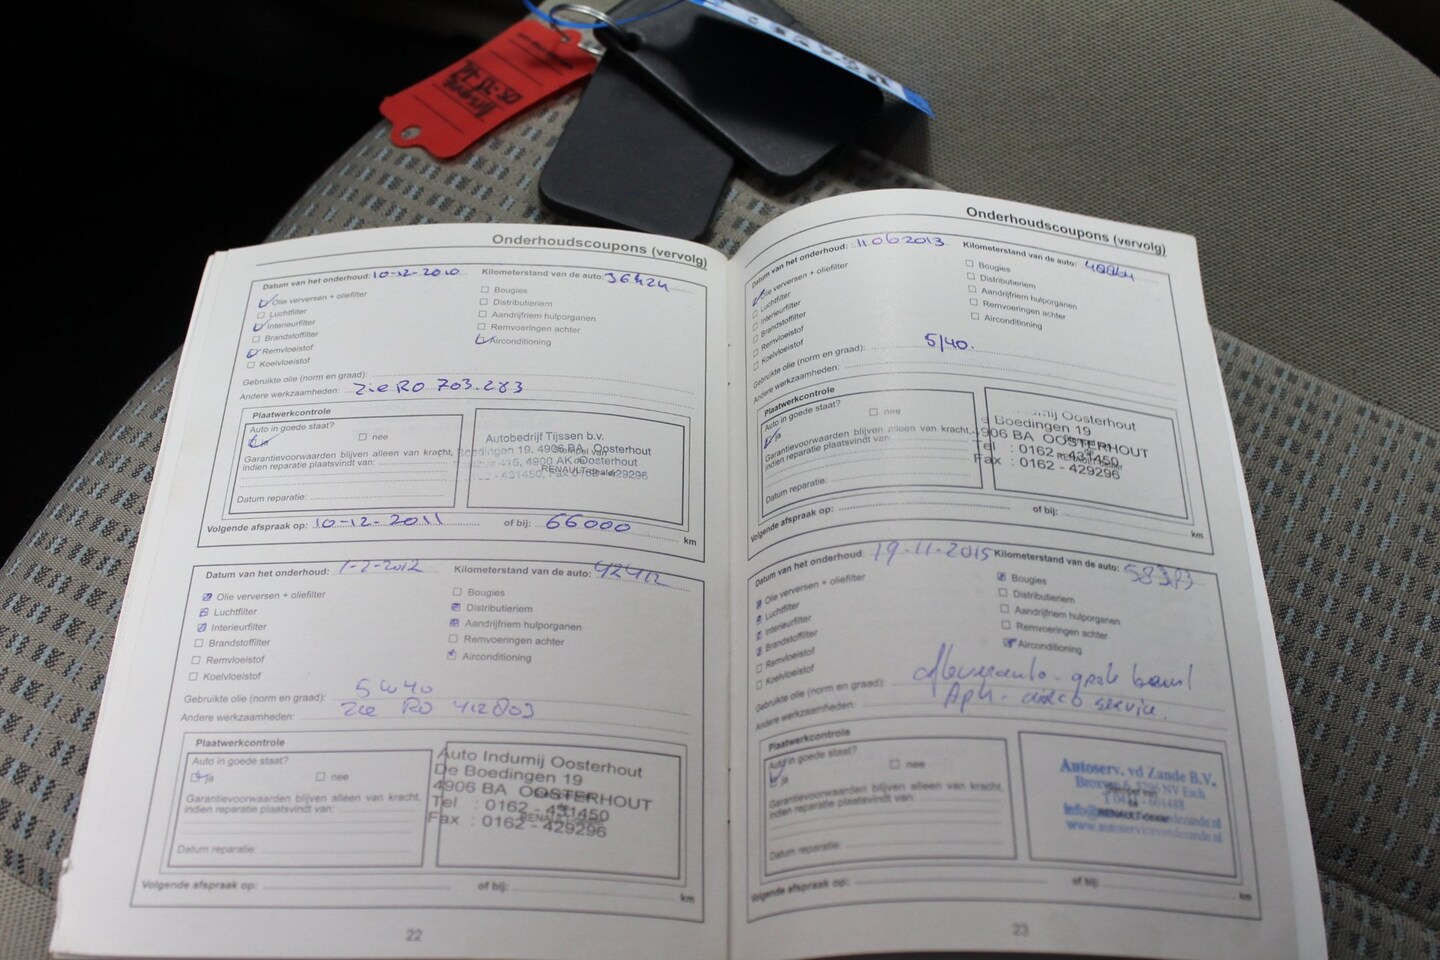 Onderhoudscoupons (vervolg)
Datum van het onderhoud: 10-12-2010 Kilometerstand van de auto: 36424
Olie verversen + oliefilter
Luchtfilter
Interieurfilter
Brandstoffilter
Remvloeistof
Koelvloeistof
Bougies
Distributieriem
Aandrijfriem hulporganen
Remvoeringen achter
Airconditioning
Gebruikte olie (norm en graad):
Andere werkzaamheden: Zie RO 703.283
Plaatwerkcontrole
Auto in goede staat?
ja nee
Garantievoorwaarden blijven alleen van kracht,
indien reparatie plaatsvindt van:
Datum reparatie:
Autobedrijf Tijssen b.v.
Boedingen 19, 4906 BA Oosterhout
415, 4900 AK Oosterhout
RENAULT-dealer
- 431450, Fax 0162-429296
Volgende afspraak op: 10-12-2011 of bij: 66000 km
Datum van het onderhoud: 1-2-2012 Kilometerstand van de auto: 42412
Olie verversen + oliefilter
Luchtfilter
Interieurfilter
Brandstoffilter
Remvloeistof
Koelvloeistof
Bougies
Distributieriem
Aandrijfriem hulporganen
Remvoeringen achter
Airconditioning
Gebruikte olie (norm en graad): 5W40
Andere werkzaamheden: Zie RO 412803
Plaatwerkcontrole
Auto in goede staat?
ja nee
Garantievoorwaarden blijven alleen van kracht,
indien reparatie plaatsvindt van:
Datum reparatie:
Auto Indumij Oosterhout
De Boedingen 19
4906 BA OOSTERHOUT
Tel : 0162 - 431450
RENAULT-dealer
Fax : 0162 - 429296
Volgende afspraak op: of bij: km
22
Onderhoudscoupons (vervolg)
Datum van het onderhoud: 11 06 2013 Kilometerstand van de auto:
Olie verversen + oliefilter
Luchtfilter
Interieurfilter
Brandstoffilter
Remvloeistof
Koelvloeistof
Bougies
Distributieriem
Aandrijfriem hulporganen
Remvoeringen achter
Airconditioning
Gebruikte olie (norm en graad): 5/40.
Andere werkzaamheden:
Plaatwerkcontrole
Auto in goede staat?
ja nee
Garantievoorwaarden blijven alleen van kracht,
indien reparatie plaatsvindt van:
Datum reparatie:
Indumij Oosterhout
e Boedingen 19
4906 BA OOSTERHOUT
Tel : 0162 - 431450
RENAULT-dealer
Fax : 0162 - 429296
Volgende afspraak op: of bij: km
Datum van het onderhoud: 19-11-2015 Kilometerstand van de auto: 58383
Olie verversen + oliefilter
Luchtfilter
Interieurfilter
Brandstoffilter
Remvloeistof
Koelvloeistof
Bougies
Distributieriem
Aandrijfriem hulporganen
Remvoeringen achter
Airconditioning
Gebruikte olie (norm en graad): grote beurt
Andere werkzaamheden: Apk - airco service.
Plaatwerkcontrole
Auto in goede staat?
ja nee
Garantievoorwaarden blijven alleen van kracht,
indien reparatie plaatsvindt van:
Datum reparatie:
Autoserv. vd Zande B.V.
5296 NV Esch
601488
RENAULT-dealer
www.autoservicevandezande.nl
Volgende afspraak op: of bij: km
23